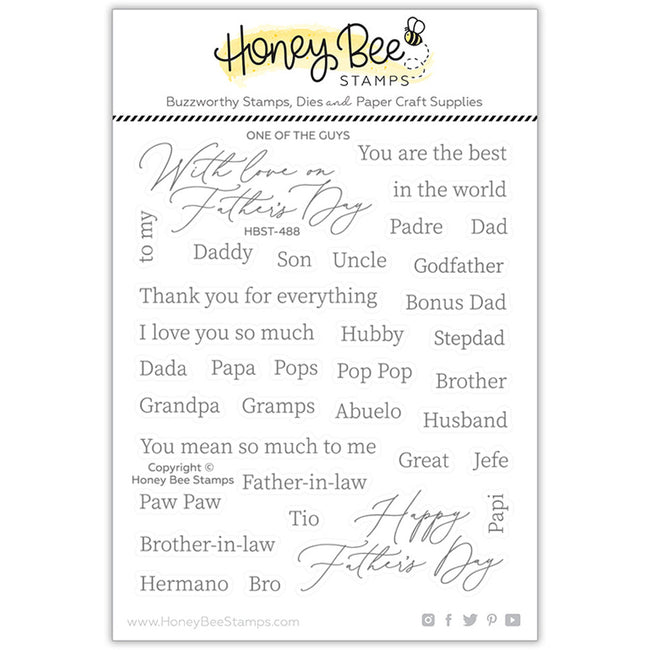 Honey Bee
STAMPS
Buzzworthy Stamps, Dies and Paper Craft Supplies
ONE OF THE GUYS
With love on
Father's Day
HBST-488
to my
You are the best
in the world
Padre Dad
Daddy Son Uncle Godfather
Thank you for everything Bonus Dad
I love you so much Hubby Stepdad
Dada Papa Pops Pop Pop Brother
Grandpa Gramps Abuelo Husband
You mean so much to me Great Jefe
Copyright ©
Honey Bee Stamps
Father-in-law
Paw Paw Tio
Happy
Father's Day
Papi
Brother-in-law
Hermano Bro
www.HoneyBeeStamps.com